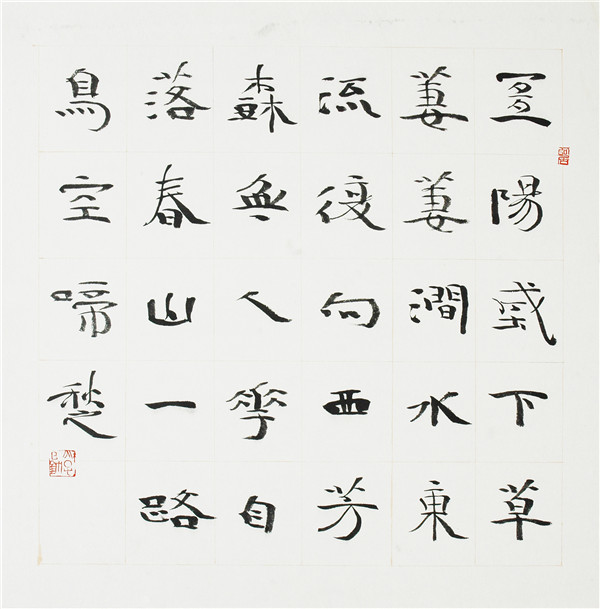 宜陽城下草
萋萋澗水東
流復向西芳
樹無人華自
落春山一路
鳥空啼愁